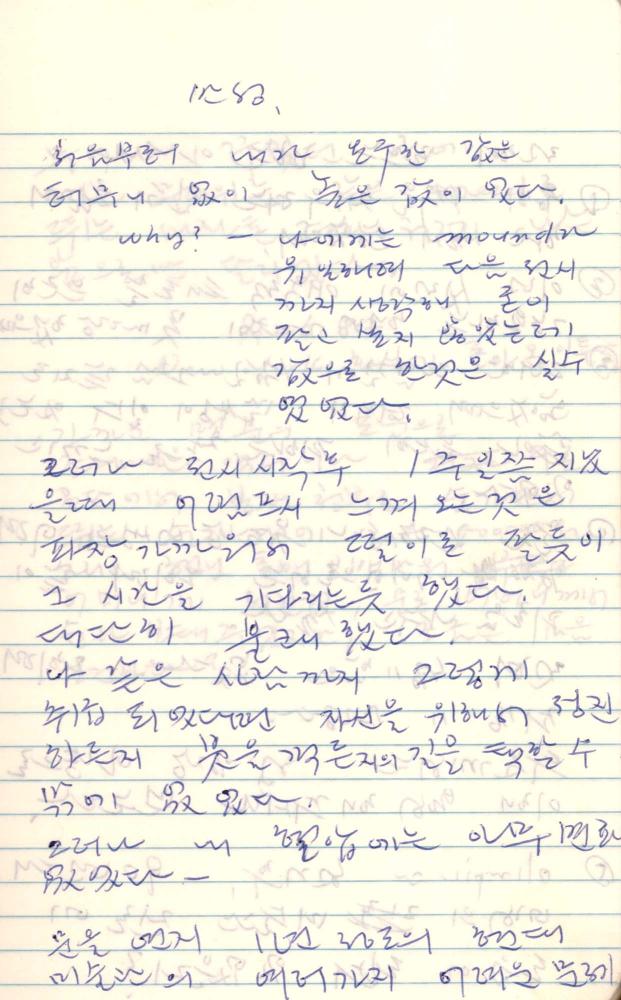 반성.
처음부터 내가 요구한 값은
터무니 없이 높은 값이 었다.
why? — 나에게는
위 일해며 다음 전시
까지 생각해 돈이
팔고 싶지 않았는데
값으로 한것은 실수
였었다.
그러나 전시 시작부 1주일쯤 지났
을때 어렴프시 느껴 오는것은
파장 가까위서 떨이로 팔듯이
그 시간을 기다리는듯 했다.
대단히 불쾌했다.
나 같은 사람까지 그렇게
취급 되었다면 자신을 위해서 정진
하든지 붓을 꺽든지의 길을 택할 수
밖에 없었다.
그러나 내 혈압에는 아무 변화
없었다 —
문을 연지 1년 정도의 현대
미술관의 여러가지 어려운 문제